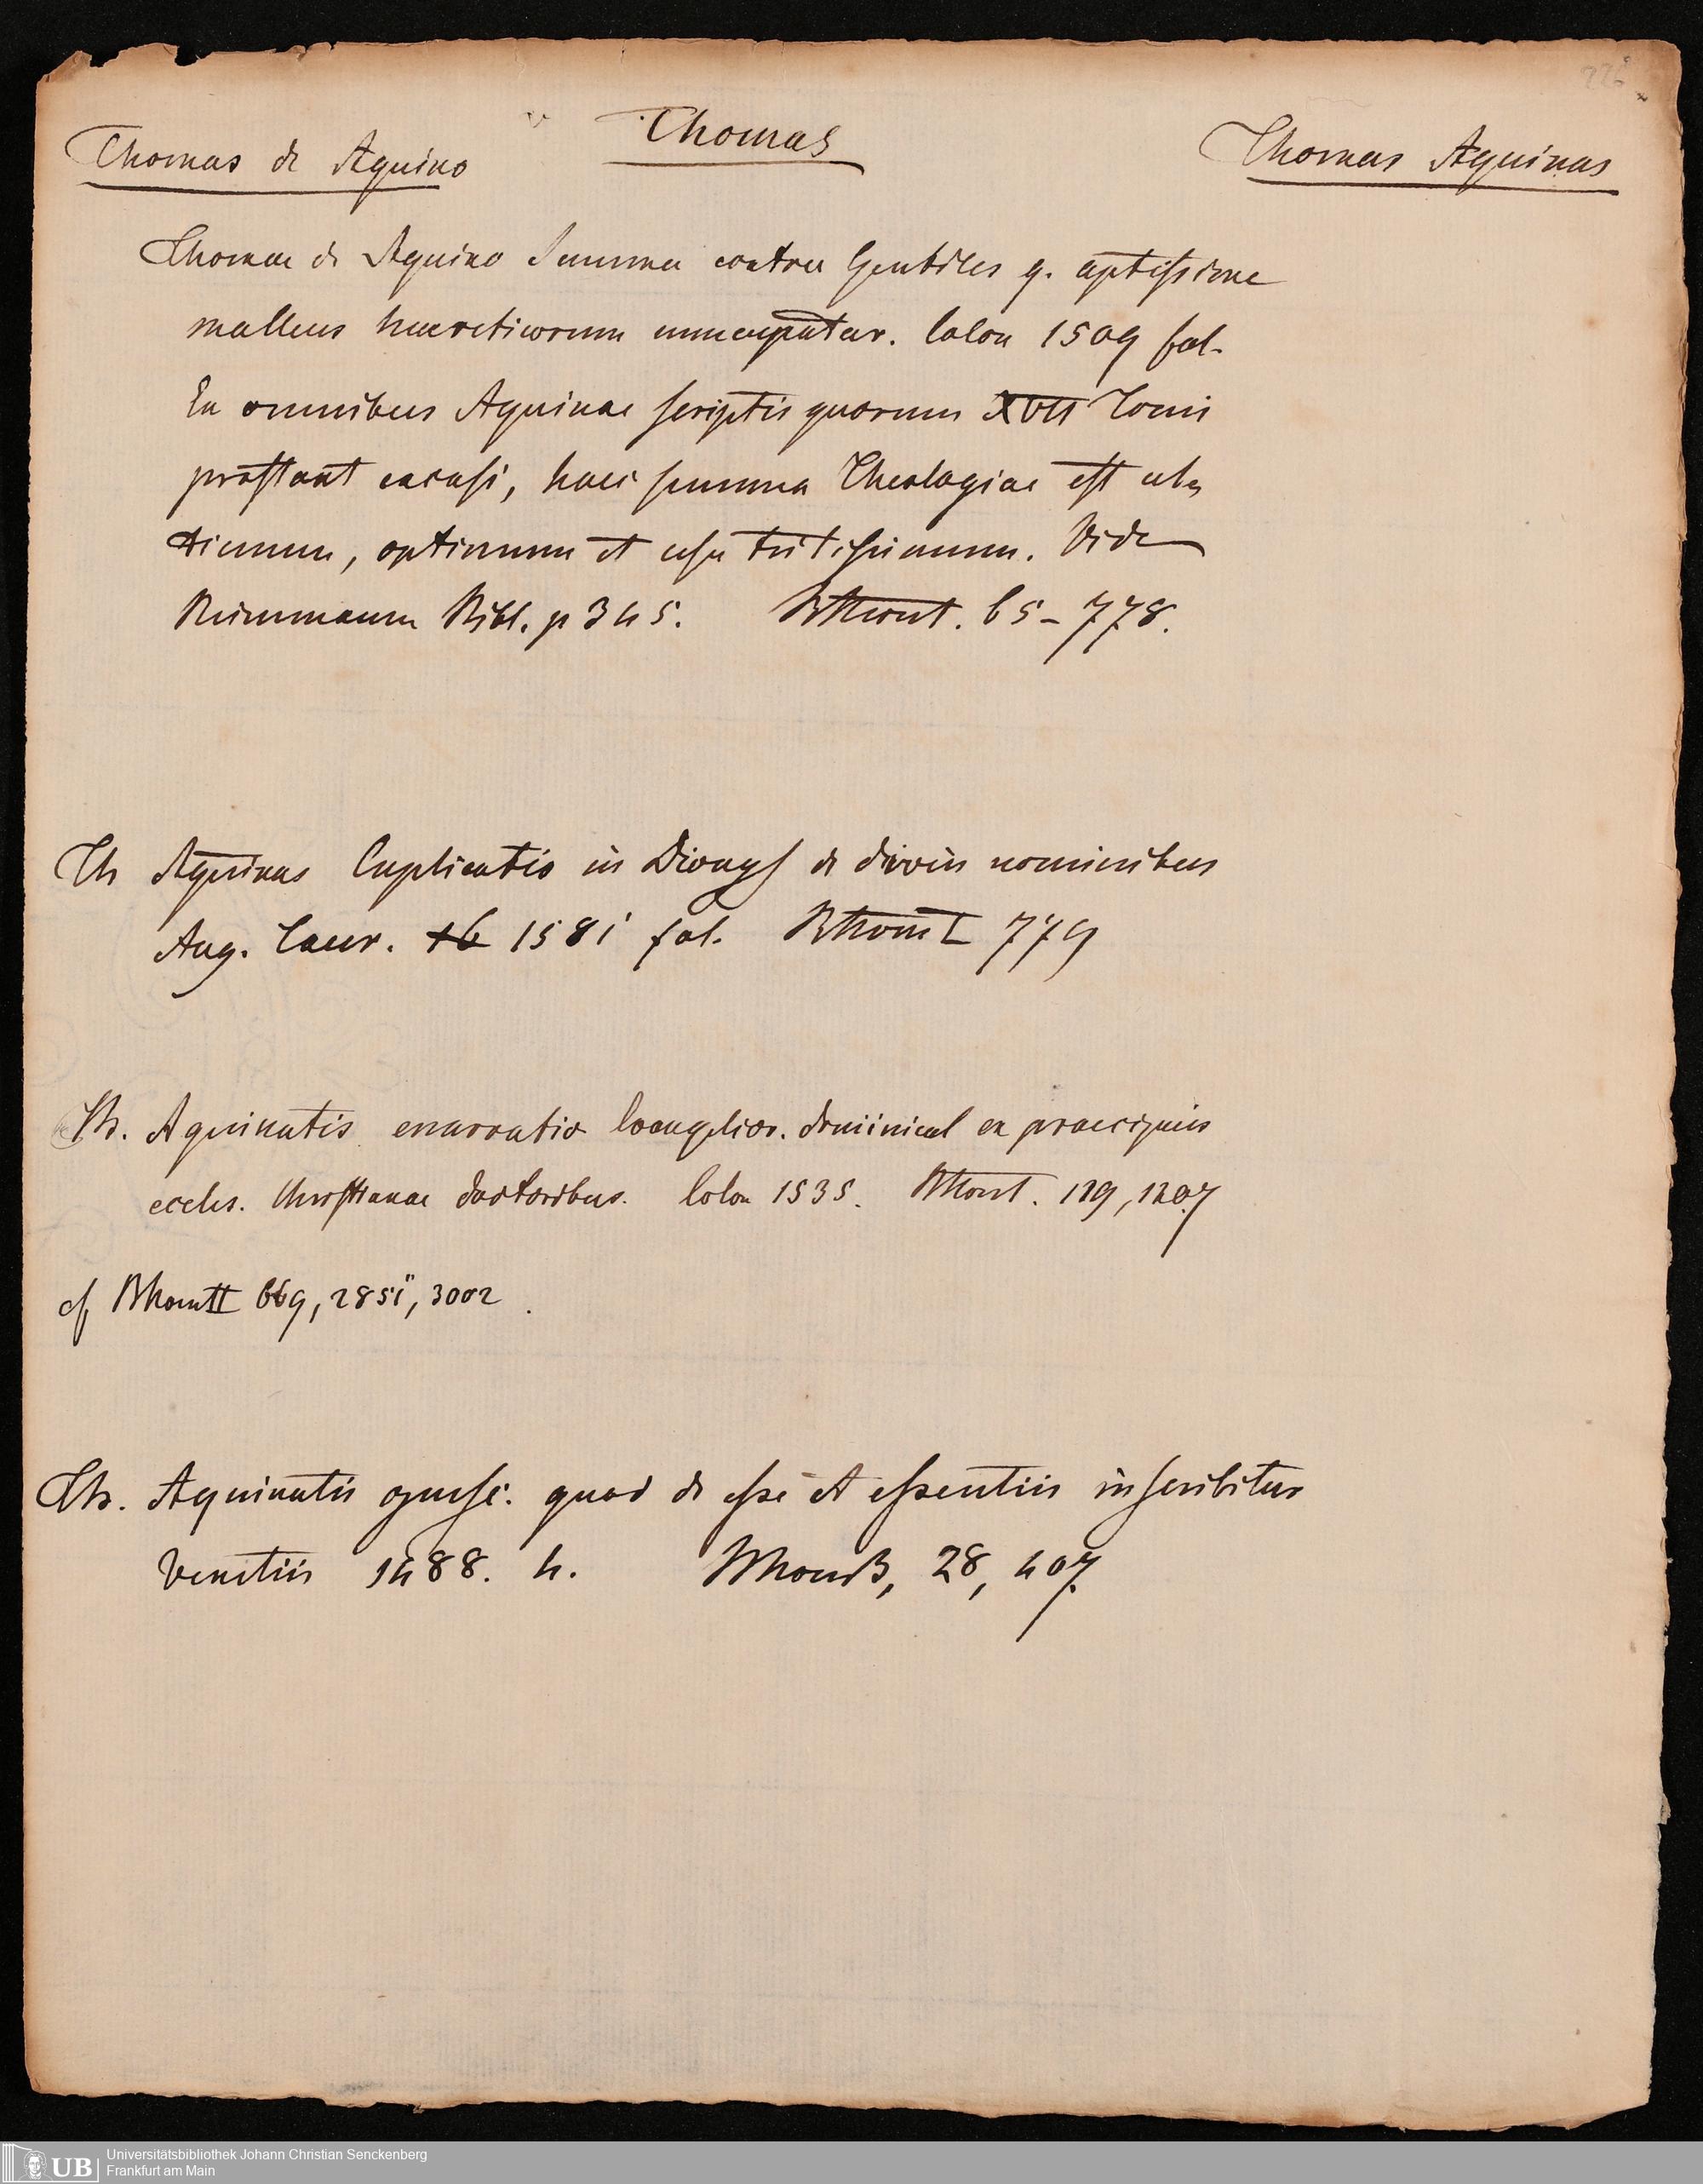 Thomas de Aquino
Thomas
Thomas Aquinas
Thomae de Aquino Summa contra Gentiles q. aptissime
malleus haereticorum nuncupatur. Colon 1509 fol.
Ex omnibus Aquinae scriptis quorum XVII Tomi
prostant excusi, haec summa Theologiae est ul-
timum, optimum et usu tritissimum. Vide
Reimmann Bibl. p 345. 65-778.
Th Aquinas Explicatio in Dionys de divin nominibus
Aug. Laur. 16 1581 fol. 779
Th. Aquinatis enarratio Evangelior. dominical ex praecipuis
eccles. Christianae doctoribus. Colon 1535. 119, 1207
cf 669, 2851, 3002.
Th. Aquinatis opusc. quod de esse et essentiis inscribitur
Venetiis 1488. 4. 28, 407
UB
Universitätsbibliothek Johann Christian Senckenberg
Frankfurt am Main